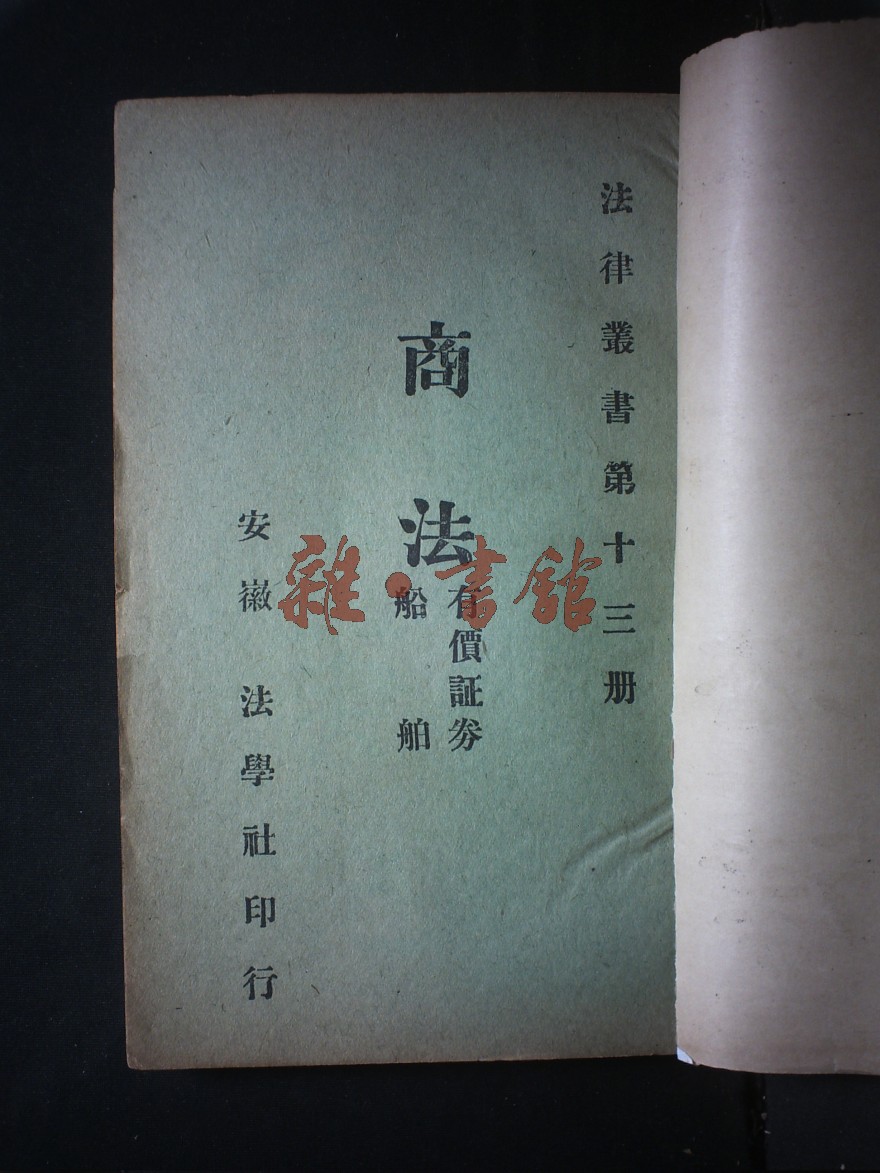 法律叢書第十三册
商法
有價証劵
船舶
安徽法學社印行
雜·書館